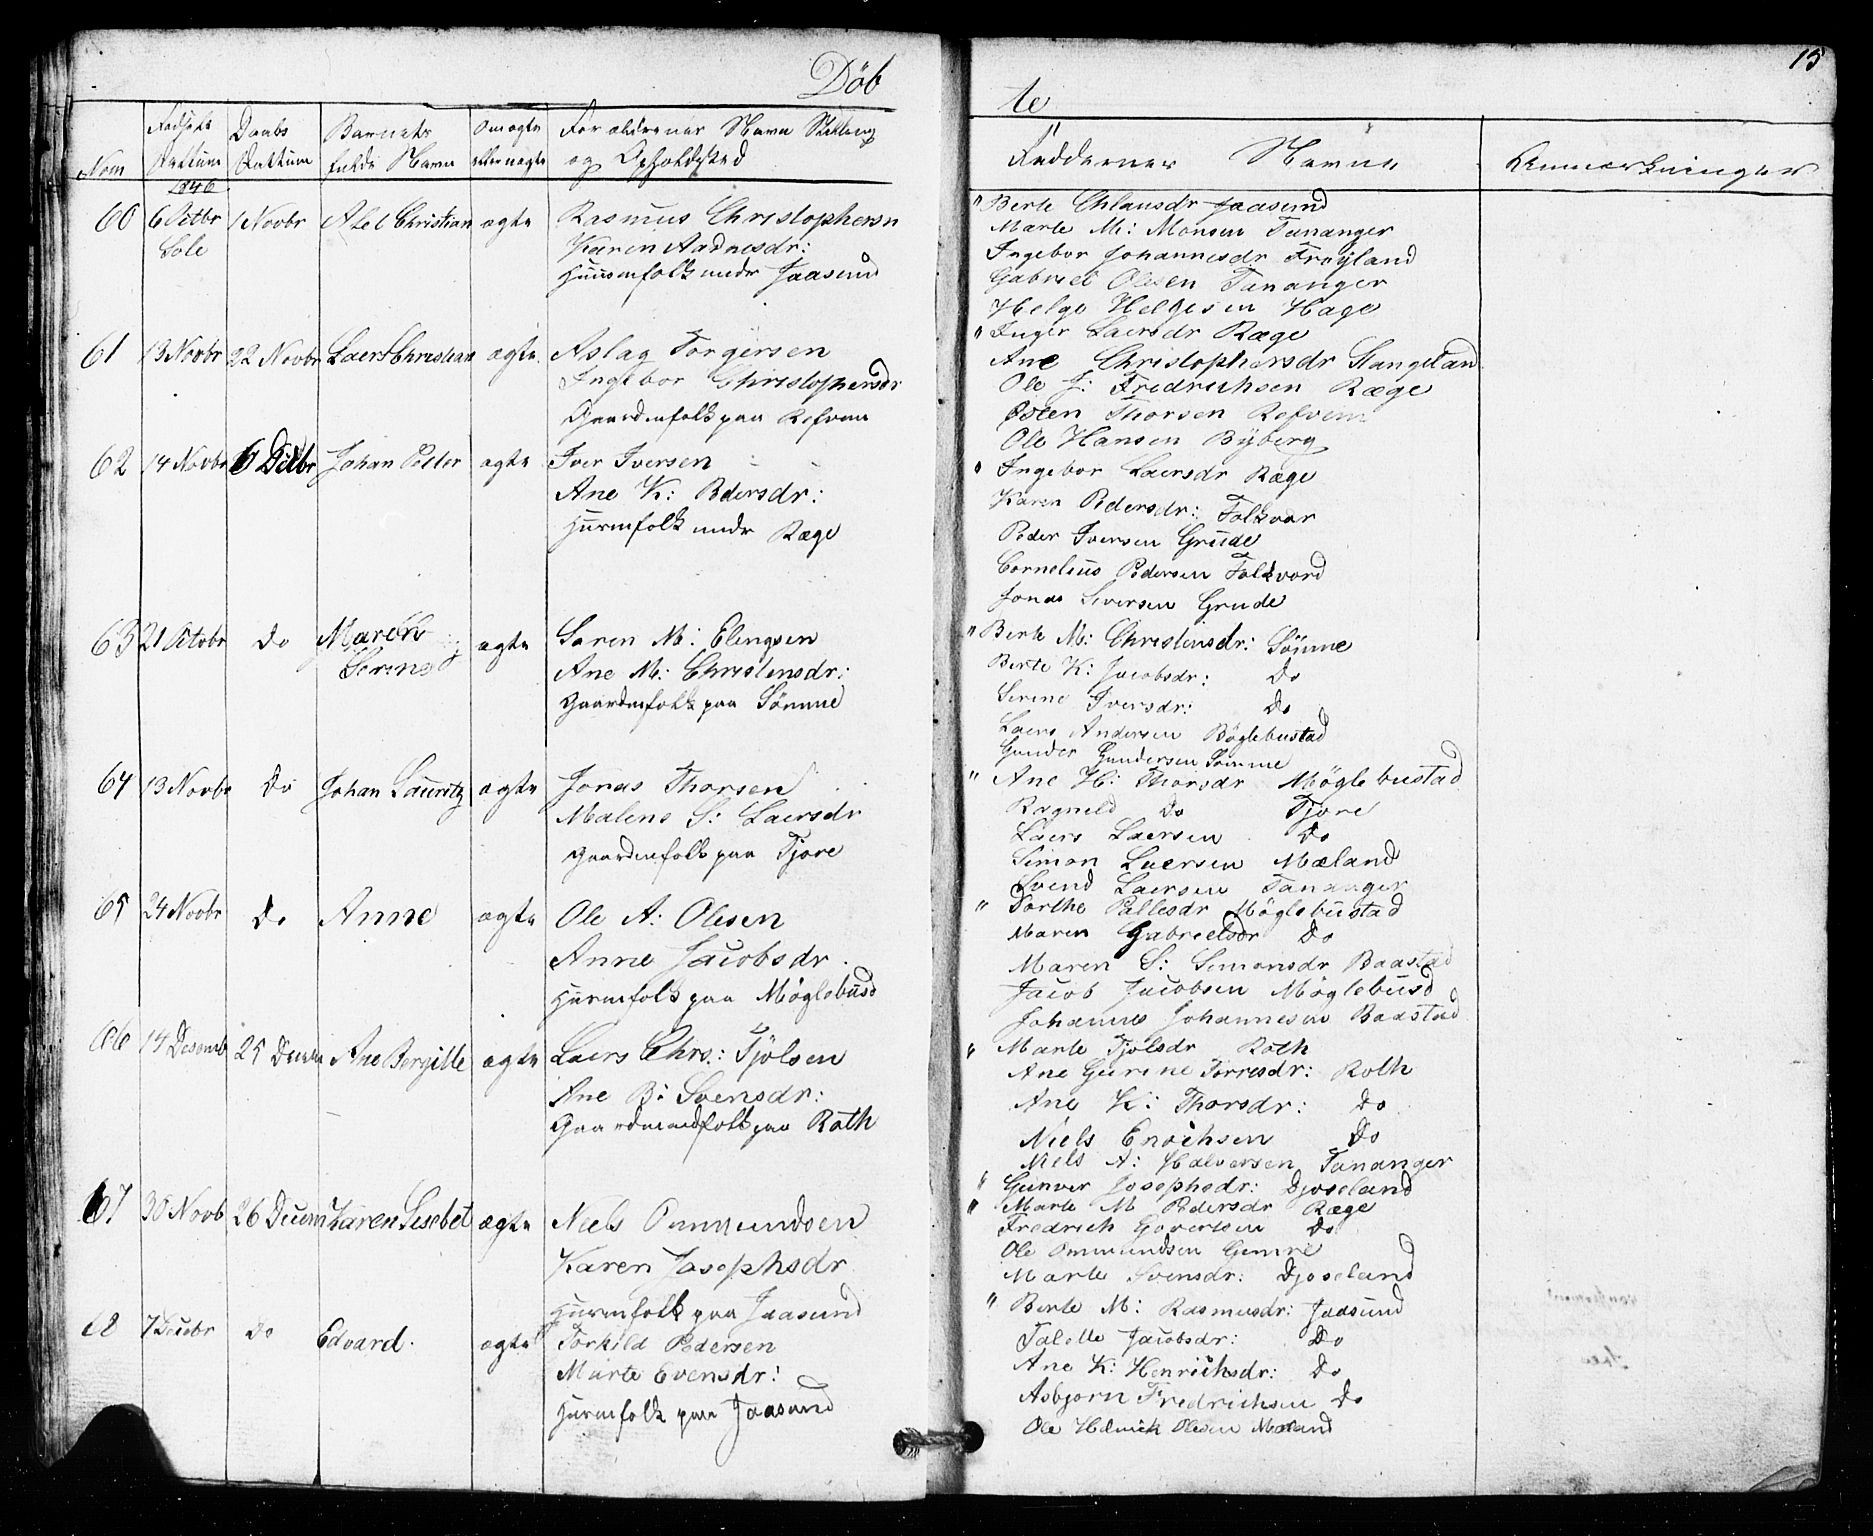 Döb
te
15
Nom
Fødsels Dattum
Daabs Dattum
Barnets fulde Navn
Om ægte eller uægte
Forældrenes Navn Stilling og Opholdsted
Faddernes Navne
Anmærkninger
1846
60 6 Octbr 1 Novbr Abel Christian ægte Rasmus Christophersn
Sole
Karen Aadnesdr:
Huusmfolk under Jaasund
" Berte Chlausdr Jaasund
Marte M: Monsen Tananger
Ingebor Johannesdr Frøyland
Gabriel Olesen Tananger
Helge Helgesen Hage
61 13 Novbr 22 Novbr Laers Christian ægte Aslag Torgersen
Ingebor Christophersdr
Gaardmfolk paa Refvem
" Inger Laersdr Ræge
Ane Christophersdr Stangeland
Ole J: Fredrichsen Ræge
Osten Thorsen Refvem
Ole Hansen Byberg
62 14 Novbr 6 Decbr Johan Peder ægte Iver Iversen
Ane K: Pedersdr:
Husmfolk under Ræge
" Ingebor Laersdr Ræge
Karen Pedersdr: Folkvor
Peder Iversen Grude
Cornelius Pedersen Folkvord
Jonas Siversen Grude
63 21 Octobr Do Maren ægte Soren M: Elingsen
Serine
Ane M: Christensdr:
Gaardmfolk paa Sömme
" Berte M: Christensdr: Sömme
Berte K: Jacobsdr: Do
Serine Iversdr: Do
Laers Andersen Böglebustad
Gunder Gundersen Sömme
64 13 Novbr Do Johan Lauritz ægte Jonas Thorsen
Malene S: Laersdr
Gaardmfolk paa Tjore
" Ane H: Thorsdr Möglebustad
Ragneld Do Tjore
Laers Laersen Do
Simon Laersen Mæland
Svend Laersen Tananger
65 24 Novbr Do Anne ægte Ole A: Olesen
Anne Jacobsdr.
Husmfolk paa Möglebusd
" Dorthe Pallesdr Möglebustad
Maren Gabrielsdr Do
Maren S: Simonsdr Baastad
Jacob Jacobsen Möglebusd
Johannes Johannesen Baastad
66 14 Desemb 25 Decem Ane Bergitte ægte Laers Chrs: Tjölsen
Ane B: Svensdr:
Gaardmandfolk paa Roth
" Marte Tjölsdr Roth
Ane Gurine Torresdr: Roth
Ane K: Thorsdr: Do
Niels Enochsen Do
Niels A: Halversen Tananger
67 30 Novb 26 Decem Karen Lisebet ægte Niels Ommundsen
Karen Josephsdr
Husmfolk paa Jaasund
" Gunver Josephsdr: Djoseland
" Marte M Pedersdr Ræge
Fredrich Govertsen Do
Ole Ommundsen Gimre
Marte Svensdr: Djoseland
68 7 Decebr Do Edvard. ægte Torkild Pedersen
Marte Evensdr:
Husmfolk paa Jaasund
" Berte M: Rasmusdr: Jaasund
Talette Jacobsdr: Do
Ane K: Henrichsdr: Do
Asbjorn Fredrichsen Do
Ole Henrick Olesen Mæland